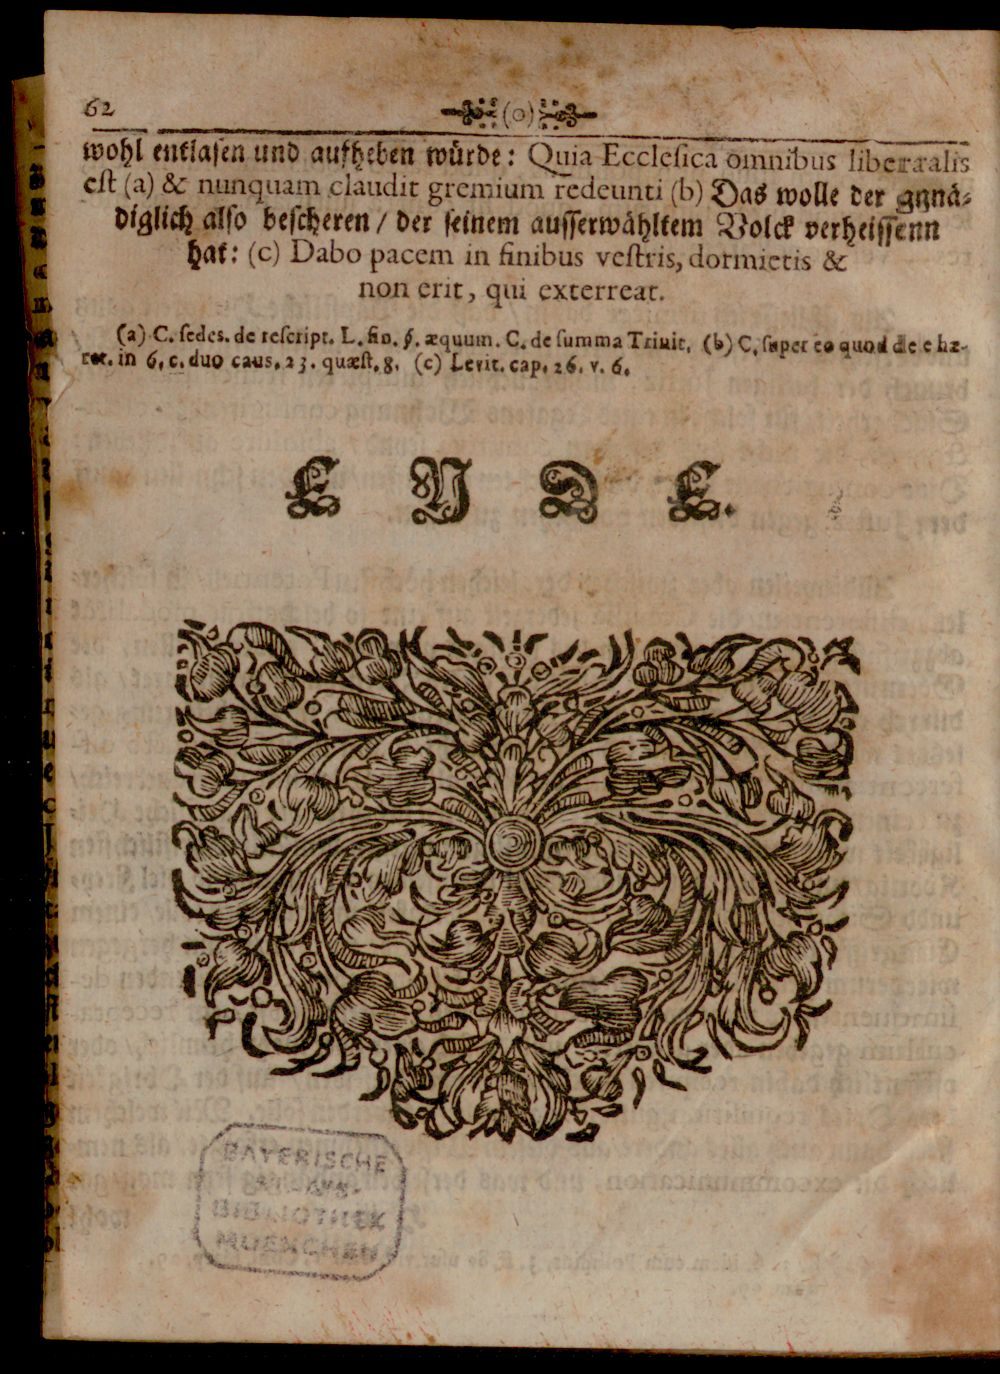 62 (o)
wohl entlasen und aufheben würde: Quia Ecclesica omnibus liberaalis
est (a) & nunquam claudit gremium redeunti (b) Das wolle der gnnä-
diglich also bescheren / der seinem ausserwähltem Volck verheissenn
hat: (c) Dabo pacem in finibus vestris, dormietis &
non erit, qui exterreat.
(a) C. sedes. de rescript. L. fin. §. æquum. C. de summa Trinit. (b) C. super eo quod de hæ-
ret. in 6. c. duo caus. 23. quæst. 8. (c) Levit. cap. 26. v. 6.
E N D E.
BAYERISCHE
STAATS-
BIBLIOTHEK
MUENCHEN